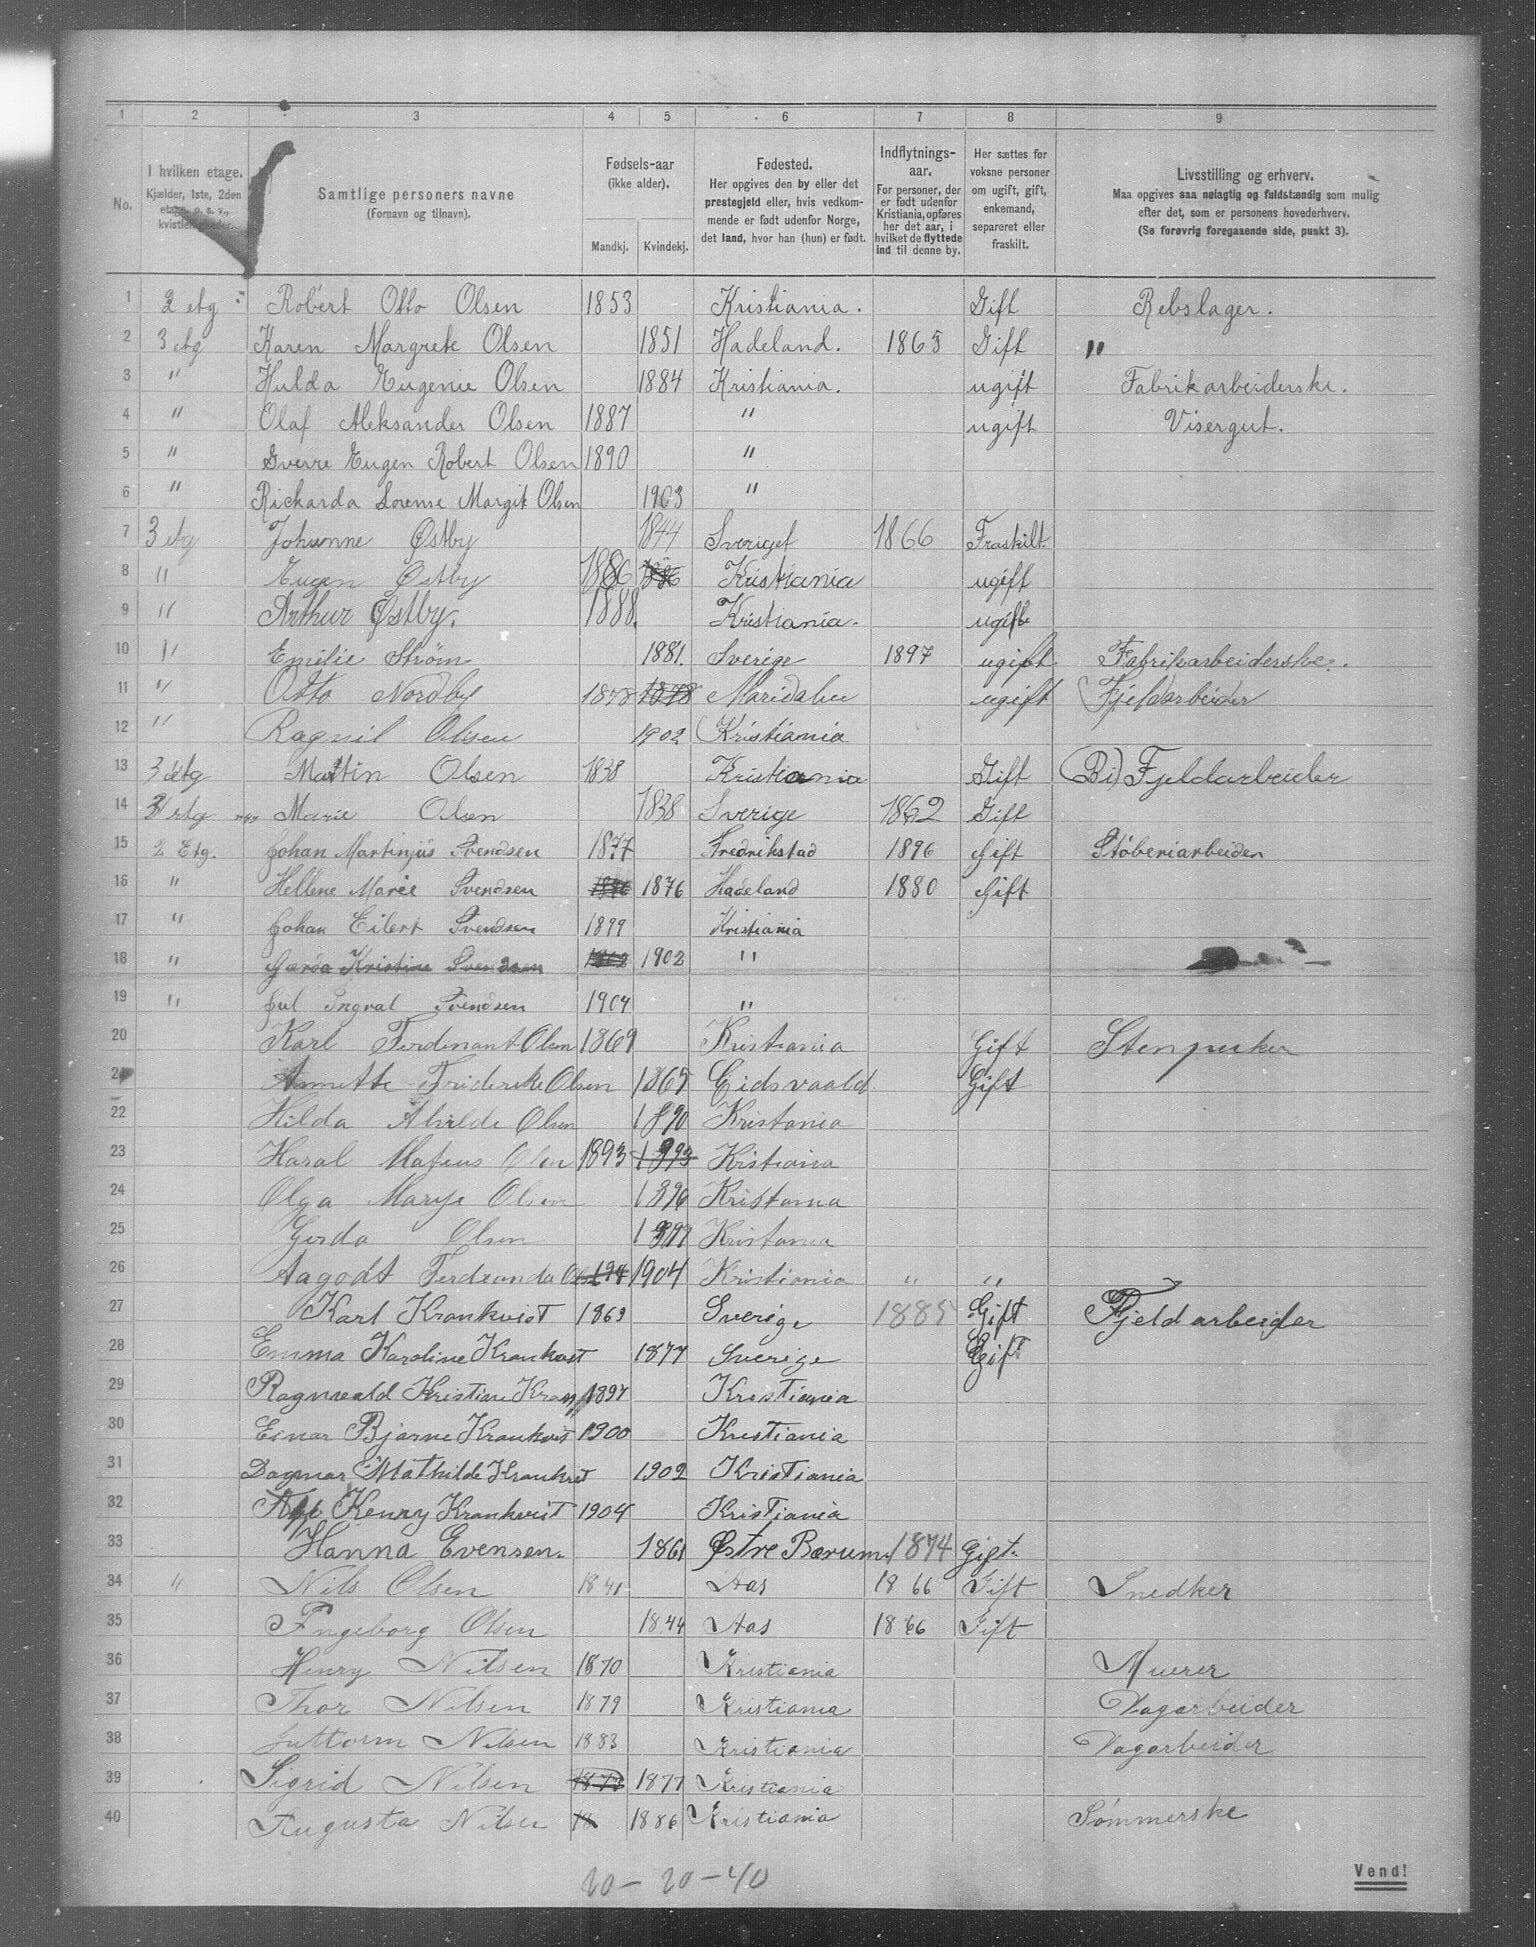 1 2 3 4 5 6 7 8 9
No.
I hvilken etage.
Kjælder, 1ste, 2den
etage, o. s. v.,
Samtlige personers navne
(Fornavn og tilnavn).
Fødsels-aar
(ikke alder).
Mandkj. Kvindekj.
Fødested.
Her opgives den by eller det
prestegjeld eller, hvis vedkom-
mende er født udenfor Norge,
det land, hvor han (hun) er født.
Indflytnings-
aar.
For personer, der
er født udenfor
Kristiania, opføres
her det aar, i
hvilket de flyttede
ind til denne by.
Her sættes for
voksne personer
om ugift, gift,
enkemand,
separeret eller
fraskilt.
Livsstilling og erhverv.
Maa opgives saa nøiagtig og fuldstændig som mulig
efter det, som er personens hovederhverv.
(Se forøvrig foregaaende side, punkt 3).
1 2 etg Robert Otto Olsen 1853 Kristiania. Gift Rebslager.
2 3 etg Karen Margrete Olsen 1851 Hadeland. 1865 Gift "
3 " Hulda Eugenie Olsen 1884 Kristiania. ugift Fabrikarbeiderske.
4 " Olaf Aleksander Olsen 1887 " ugift Visergut.
5 " Sverre Eugen Robert Olsen 1890 "
6 " Rickarda Lorense Margit Olsen 1903 "
7 3 etg Johanne Østby 1844 Sveriget 1866 Fraskilt
8 " Eugen Østby 1886 1886 Kristiania ugift
9 " Arthur Østby. 1888. Kristiania. ugift
10 " Emilie Strøm 1881. Sverige 1897 ugift Fabrikarbeiderske.
11 " Otto Nordby 1878 1878 Maridalen ugift Fjeldarbeider
12 " Ragnil Olsen 1902 Kristiania
13 3 etg Martin Olsen 1838 Kristiania Gift (Bi) Fjeldarbeider
14 3 etg Marie Olsen 1838 Sverige 1862 Gift
15 2 Etg. Johan Martinjus Svendsen 1877 Fredrikstad 1896 Gift Støberiarbeider
16 " Hellene Marie Svendsen 1876 Hadeland 1880 Gift
17 " Johan Eilert Svendsen 1899 Kristiania
18 " Gerda Kristine Svendsen 1902 1902 "
19 " Jul Ingval Svendsen 1904 "
20 Karl Ferdinant Olsen 1869 Kristiania Gift Stenpukker
21 Annette Friderike Olsen 1865 Eidsvaald Gift
22 Hilda Alvilde Olsen 1890 Kristania
23 Haral Mateus Olsen 1893 1893 Kistiania
24 Olga Marye Olsen 1896 Kristania
25 Gerda Olsen 1899 Kristania
26 Aagodt Ferdianda Ols 194 1904 Kristiania " "
27 Karl Krankvist 1869 Sverige 1885 Gift Fjeldarbeider
28 Emma Karoline Krankvist 1877 Sverige Gift
29 Ragnvald Kristian Kran 1897 Kristiania
30 Einar Bjarne Krankvist 1900 Kristiania
31 Dagmar Mathilde Krankvist 1902 Kristiania
32 Henry Krankvist 1904 Kristiania
33 Hanna Evensen. 1861 Østre Bærum. 1874 Gift.
34 " Nils Olsen 1841 Aas 1866 Gift Snedker
35 Ingeborg Olsen 1844 Aas 1866 Gift
36 Henry Nilsen 1870 Kristiania Murer
37 Thor Nilsen 1879 Kristiania Dagarbeider
38 Guttorm Nilsen 1883 Kristiania Dagarbeider
39 Sigrid Nilsen 1877 1877 Kristiania
40 Augusta Nilsen 18 1886 Kristiania Sømmerske
20 - 20 - 40
Vend!